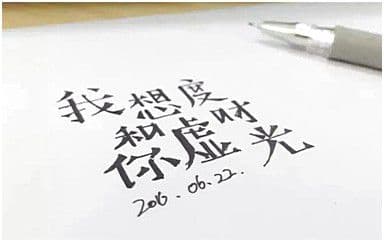 我想和你虚度时光
2016.06.22.